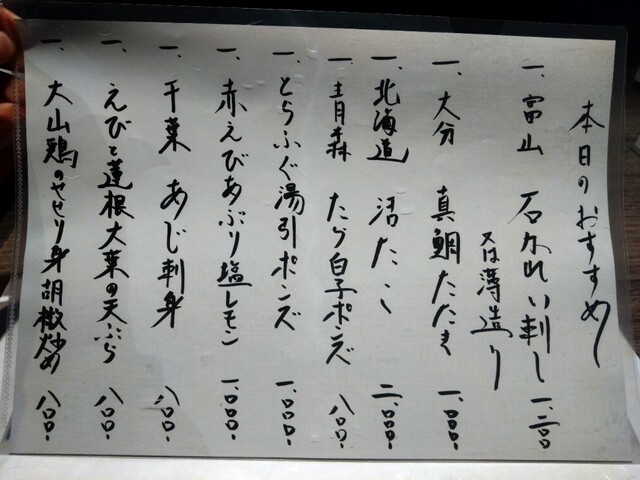 本日のおすすめ
一、富山 石かれい刺し 一、三〇〇
又は薄造り
一、大分 真鯛たたき 一、〇〇〇、
一、北海道 活たこ 二、〇〇〇、
一、青森 たら白子ポンズ 八〇〇、
一、とらふぐ湯引ポンズ 一、〇〇〇、
一、赤えびあぶり塩レモン 一、〇〇〇、
一、千葉 あじ刺身 八〇〇、
一、えびと蓮根大葉の天ぷら 八〇〇、
一、大山鶏のせせり身胡椒炒め 八〇〇、